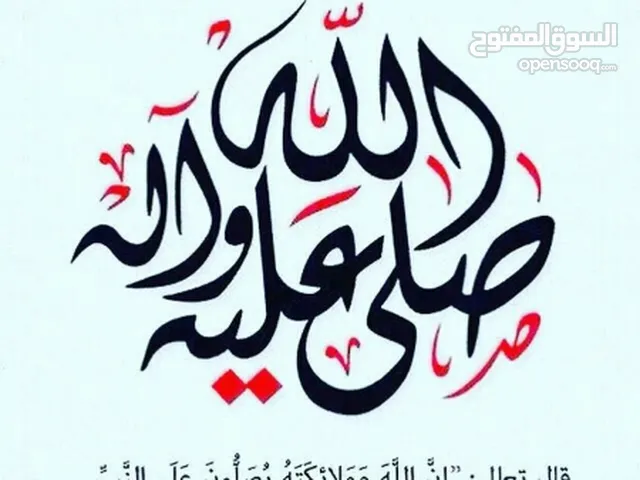 السوق المفتوح
opensooq.com
صلى الله عليه وآله
قال تعالى: "إِنَّ اللَّهَ وَمَلَائِكَتَهُ يُصَلُّونَ عَلَى النَّبِيِّ